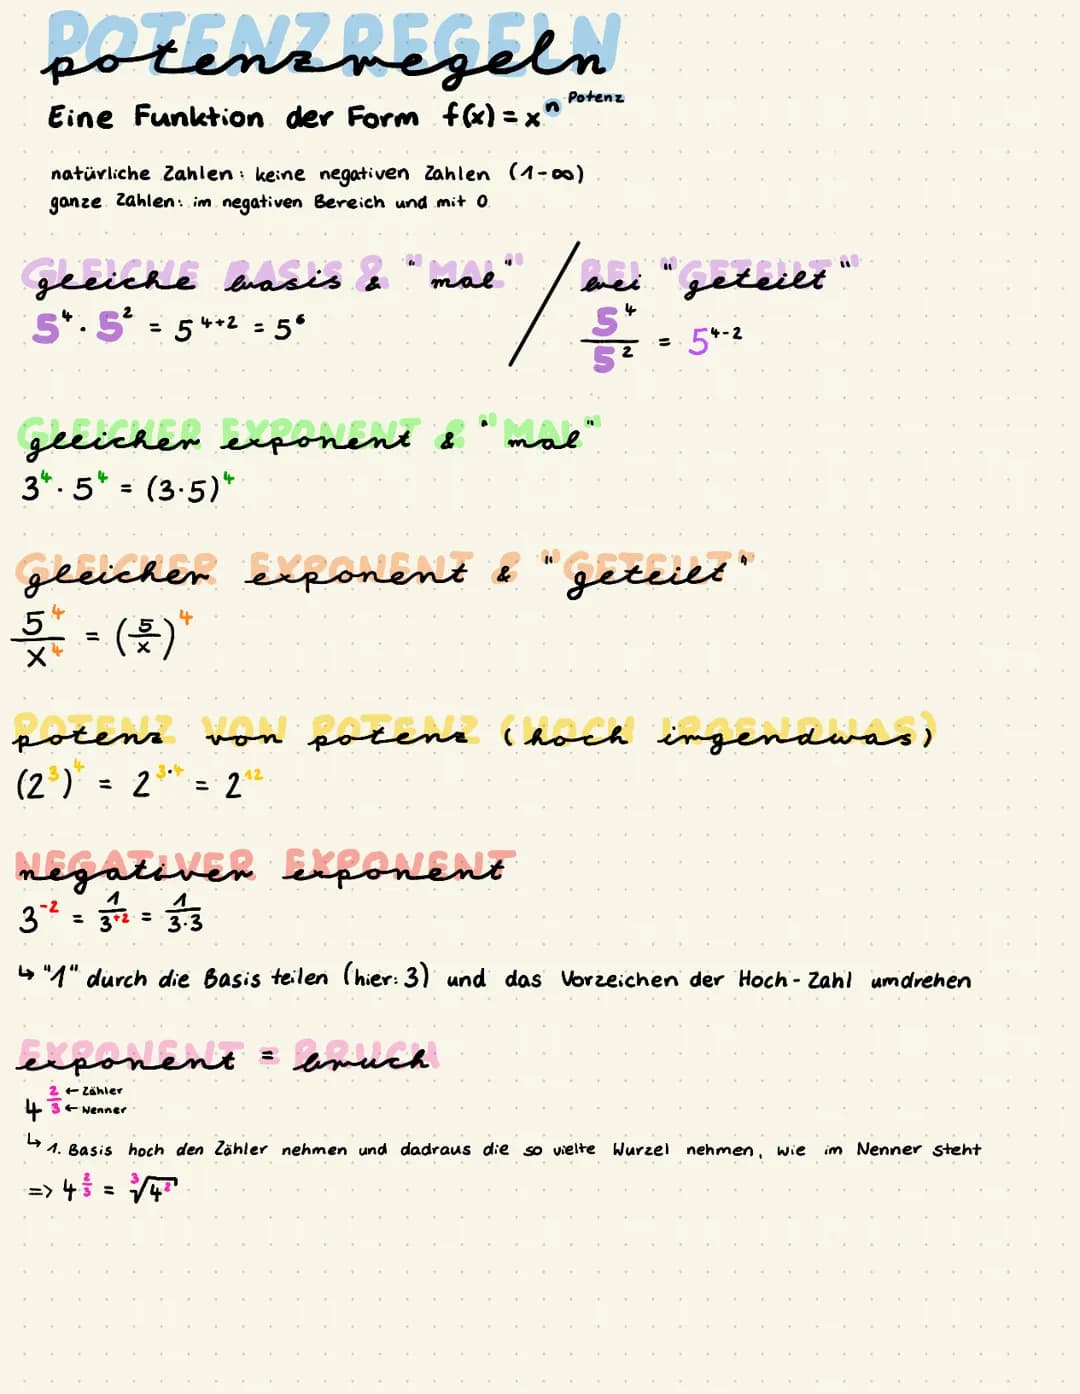 POTENZREGELN
potenzregeln
Eine Funktion der Form f(x) = xⁿ Potenz
natürliche Zahlen: keine negativen Zahlen (1-∞)
ganze Zahlen: im negativen Bereich und mit 0
GLEICHE BASIS & "MAL" / BEI "GETEILT"
gleiche basis & "mal" / bei "geteilt"
5⁴ · 5² = 5⁴⁺² = 5⁶
5⁴/5² = 5⁴⁻²
GLEICHER EXPONENT & "MAL"
gleicher exponent & "mal"
3⁴ · 5⁴ = (3·5)⁴
GLEICHER EXPONENT & "GETEILT"
gleicher exponent & "geteilt"
5⁴/x⁴ = (5/x)⁴
POTENZ VON POTENZ (HOCH IRGENDWAS)
potenz von potenz (hoch irgendwas)
(2³)⁴ = 2³·⁴ = 2¹²
NEGATIVER EXPONENT
negativer exponent
3⁻² = 1/3⁺² = 1/3·3
↳ "1" durch die Basis teilen (hier: 3) und das Vorzeichen der Hoch-Zahl umdrehen
EXPONENT = BRUCH
exponent = bruch
4^(2/3) ← Zähler
← Nenner
↳ 1. Basis hoch den Zähler nehmen und dadraus die so vielte Wurzel nehmen, wie im Nenner steht
=> 4^(2/3) = ³√4²